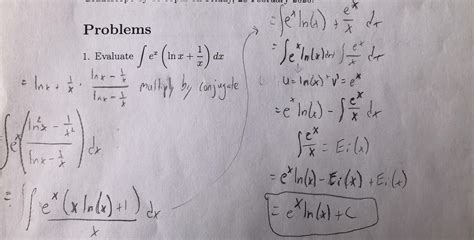 Problems
1. Evaluate ∫ e^x (ln x + 1/x) dx
= ln x + 1/x · (ln x - 1/x)/(ln x - 1/x) multiply by conjugate
∫ e^x ((ln^2 x - 1/x^2)/(ln x - 1/x)) dx
= ∫ e^x (x ln(x) + 1)/x dx
= ∫ e^x ln(x) + e^x/x dx
= ∫ e^x ln(x) dx + ∫ e^x/x dx
u = ln(x) v' = e^x
= e^x ln(x) - ∫ e^x/x dx
∫ e^x/x = Ei(x)
= e^x ln(x) - Ei(x) + Ei(x)
= e^x ln(x) + C